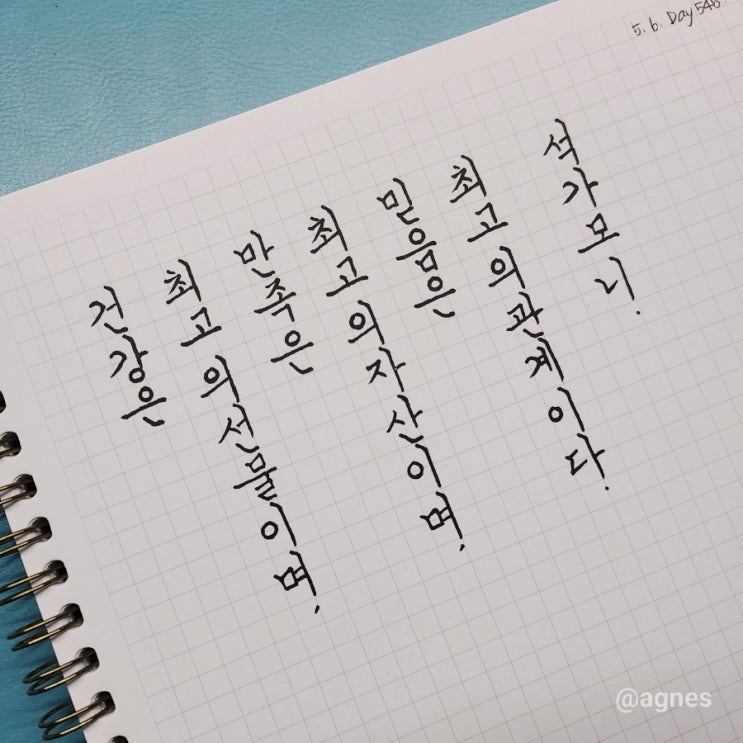 5. 6. Day 546.
건강은
최고의 선물이며,
만족은
최고의 자산이며,
믿음은
최고의 관계이다.
석가모니.
@agnes